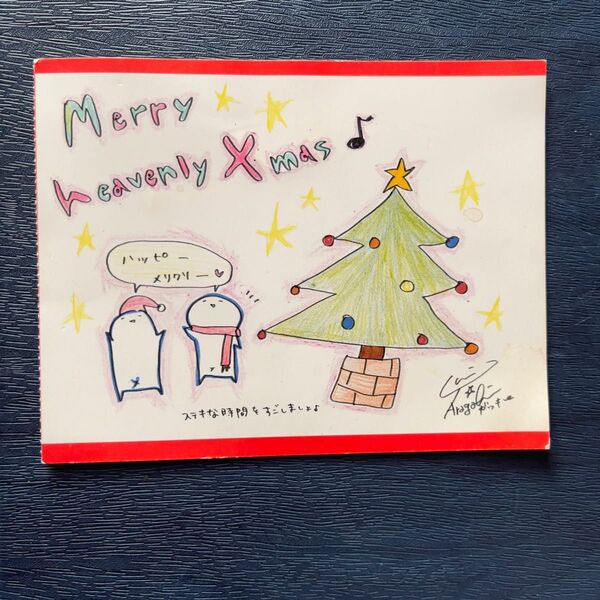 Merry
heavenly Xmas♪
ハッピー
メリクリー♡
ステキな時間をすごしましょ♪